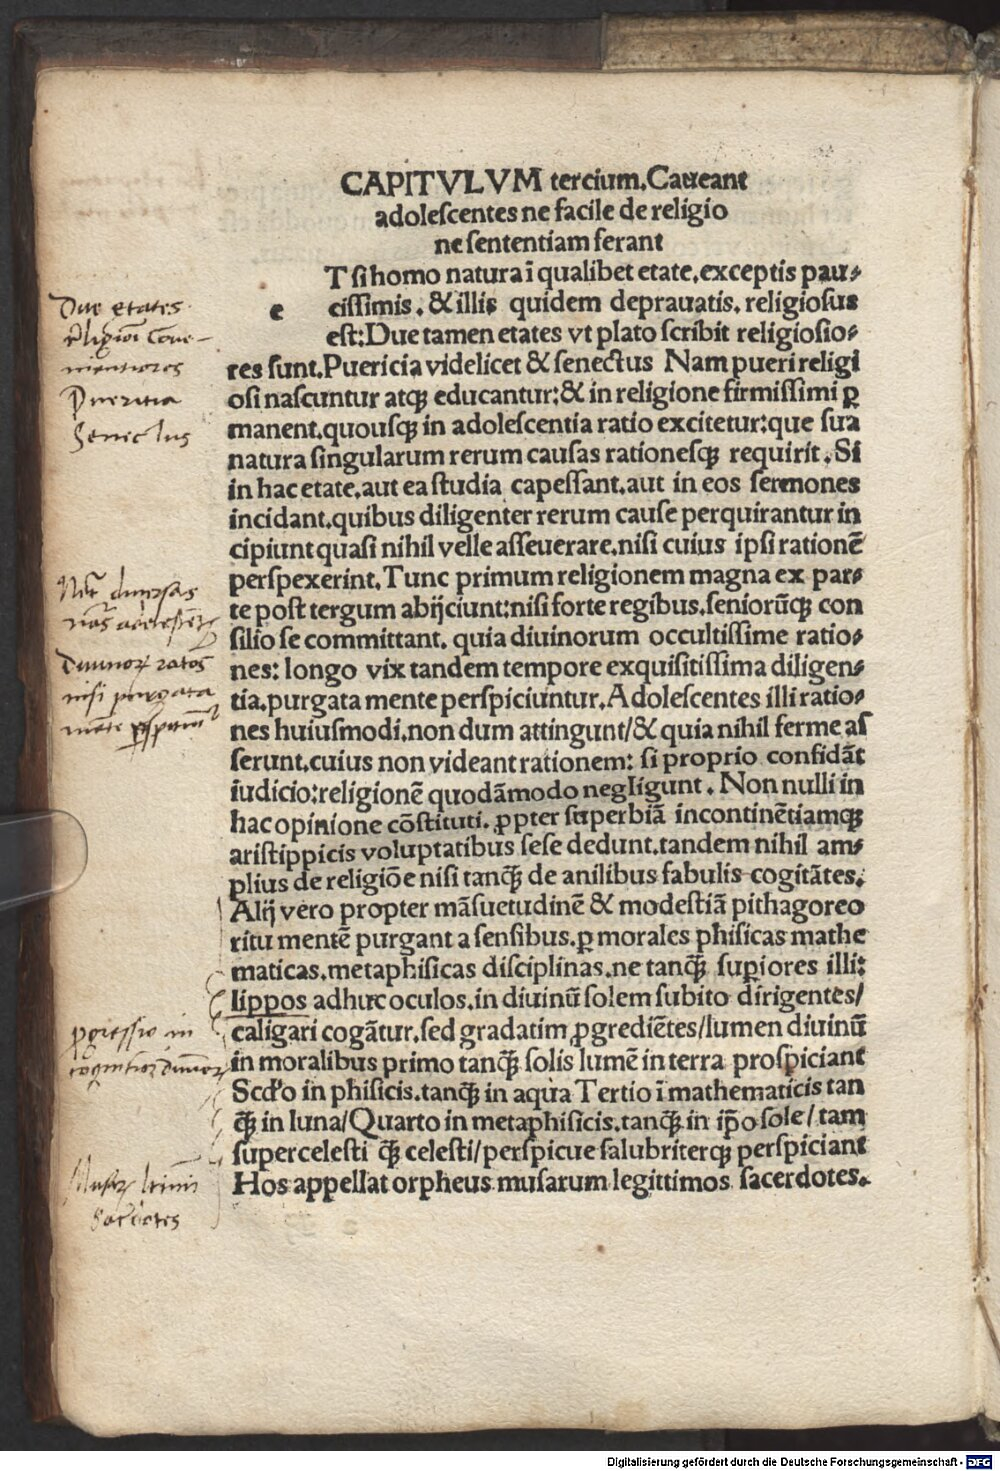 CAPITVLVM tercium. Caueant
adolescentes ne facile de religio
ne sententiam ferant
e T si homo natura ī qualibet etate. exceptis pau⸗
cissimis. & illis quidem deprauatis. religiosus
est: Due tamen etates vt plato scribit religiosio⸗
res sunt. Puericia videlicet & senectus Nam pueri religi
osi nascuntur atqꝫ educantur: & in religione firmissimi ꝑ
manent. quousqꝫ in adolescentia ratio excitetur: que sua
natura singularum rerum causas rationesqꝫ requirit. Si
in hac etate. aut ea studia capessant. aut in eos sermones
incidant. quibus diligenter rerum cause perquirantur in
cipiunt quasi nihil velle asseuerare. nisi cuius ipsi rationē
perspexerint. Tunc primum religionem magna ex par⸗
te post tergum abijciunt: nisi forte regibus. seniorūqꝫ con
silio se committant. quia diuinorum occultissime ratio⸗
nes: longo vix tandem tempore exquisitissima diligen⸗
tia. purgata mente perspiciuntur. Adolescentes illi ratio⸗
nes huiusmodi. non dum attingunt/ & quia nihil ferme as
serunt. cuius non videant rationem: si proprio confidāt
iudicio: religionē quodāmodo negligunt. Non nulli in
hac opinione cōstituti. ꝓpter superbiā incontinētiamqꝫ
aristippicis voluptatibus sese dedunt. tandem nihil am⸗
plius de religiōe nisi tanqꝫ̄ de anilibus fabulis cogitātes.
Alij vero propter māsuetudinē & modestiā pithagoreo
ritu mentē purgant a sensibus. ꝑ morales phisicas mathe
maticas. metaphisicas disciplinas. ne tanqꝫ̄ suꝑiores illi:
lippos adhuc oculos. in diuinū solem subito dirigentes/
caligari cogātur. sed gradatim ꝓgrediētes/ lumen diuinū
in moralibus primo tanqꝫ̄ solis lumē in terra prospiciant
Scd̓o in phisicis. tanqꝫ̄ in aqua Tertio ī mathematicis tan
qꝫ̄ in luna/ Quarto in metaphisicis. tanqꝫ̄ in ip̄o sole/ tam
supercelesti qꝫ̄ celesti/ perspicue salubriterqꝫ perspiciant
Hos appellat orpheus musarum legittimos sacerdotes.
Due etates
mentiores
Pueritia
Senectus
diuersas
nisi purgata
ꝓgressio in
Sacerdotes
Digitalisierung gefördert durch die Deutsche Forschungsgemeinschaft - DFG